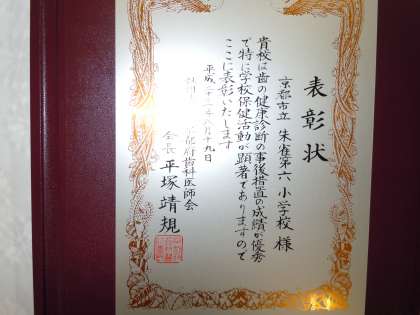 表彰状
京都市立 朱雀第六小学校 様
貴校は歯の健康診断の事後措置の成績が優秀
で特に学校保健活動が顕著でありますので
ここに表彰いたします
平成二十三年 月十九日
府歯科医師会
会長 平塚靖規